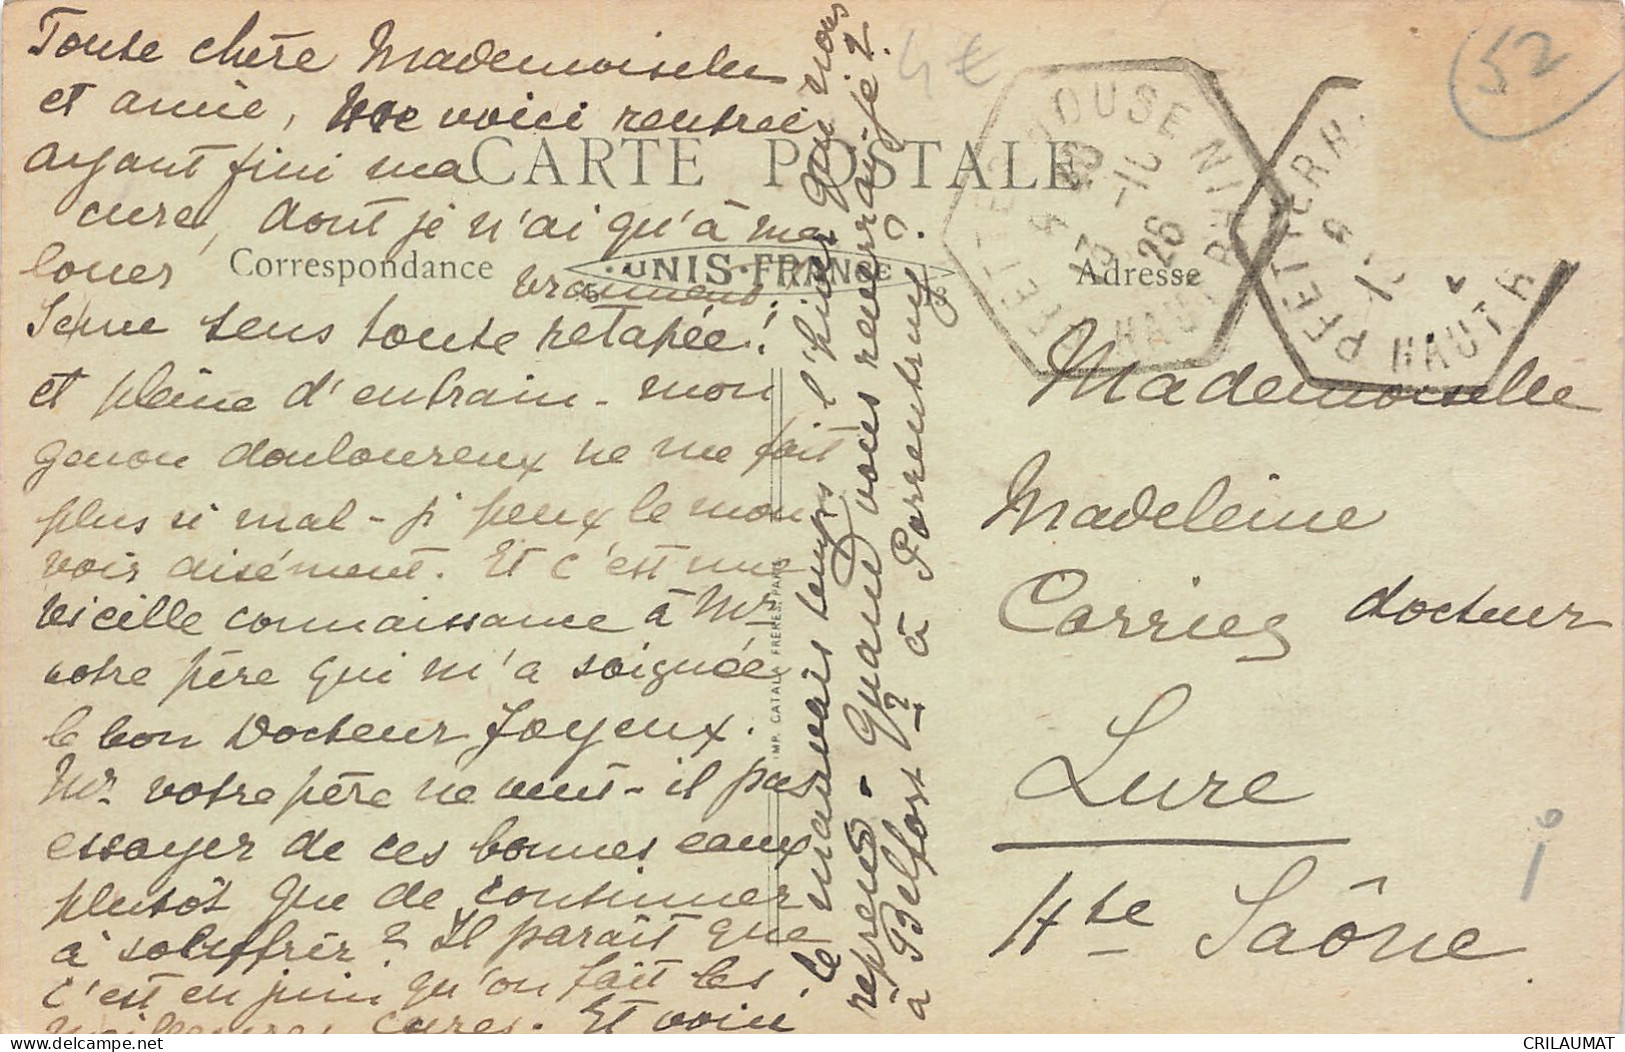 Toute chère Mademoiselle
et amie, Me voici rentrée
ayant fini ma
cure, dont je n'ai qu'à me
louer vraiment.
Je me sens toute retapée!
et pleine d'entrain - mon
genou douloureux ne me fait
plus si mal - je peux le mou
voir aisément. Et c'est une
vieille connaissance à Mr
votre père qui m'a soignée
le bon Docteur Joyeux.
Mr votre père ne veut-il pas
essayer de ces bonnes eaux
plutôt que de continuer
à souffrir? Il paraît que
c'est en juin qu'on fait les
meilleures cures. Et voici
le mauvais temps l'hiver qui nous
reprend - Quand vous reverrai-je?
à Belfort? - à Porrentruy
CARTE POSTALE
Correspondance
UNIS-FRANCE
Adresse
IMP. CATALA FRERES, PARIS
Mademoiselle
Madeleine
Corriez docteur
Lure
Hte Saône
4€
52
i
13 -10
26
HAUT RHIN
PFETTERH.
HAUT R
delcampe.net
CRILAUMAT